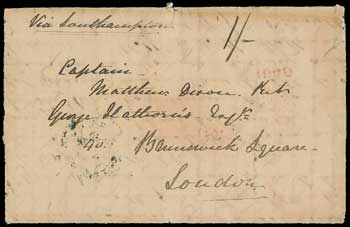 Via Southampton
1/-
Captain
Matthew Dixon
George Hathorn's Esqr
40
Brunswick Square
London